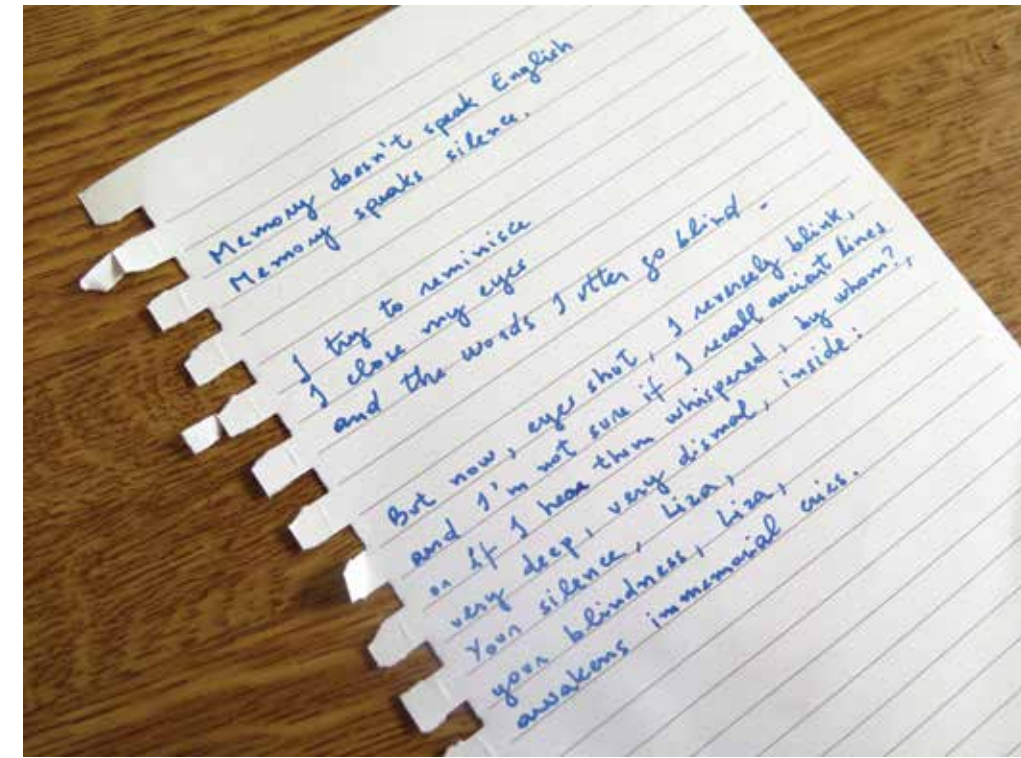 Memory doesn't speak English
Memory speaks silence.
I try to reminisce
I close my eyes
and the words I utter go blind.
But now, eyes shut, I reversely blink,
and I'm not sure if I recall ancient lines
or if I hear them whispered, by whom?,
very deep, very dismal, inside:
Your silence, Liza,
your blindness, Liza,
awakens immemorial cries.